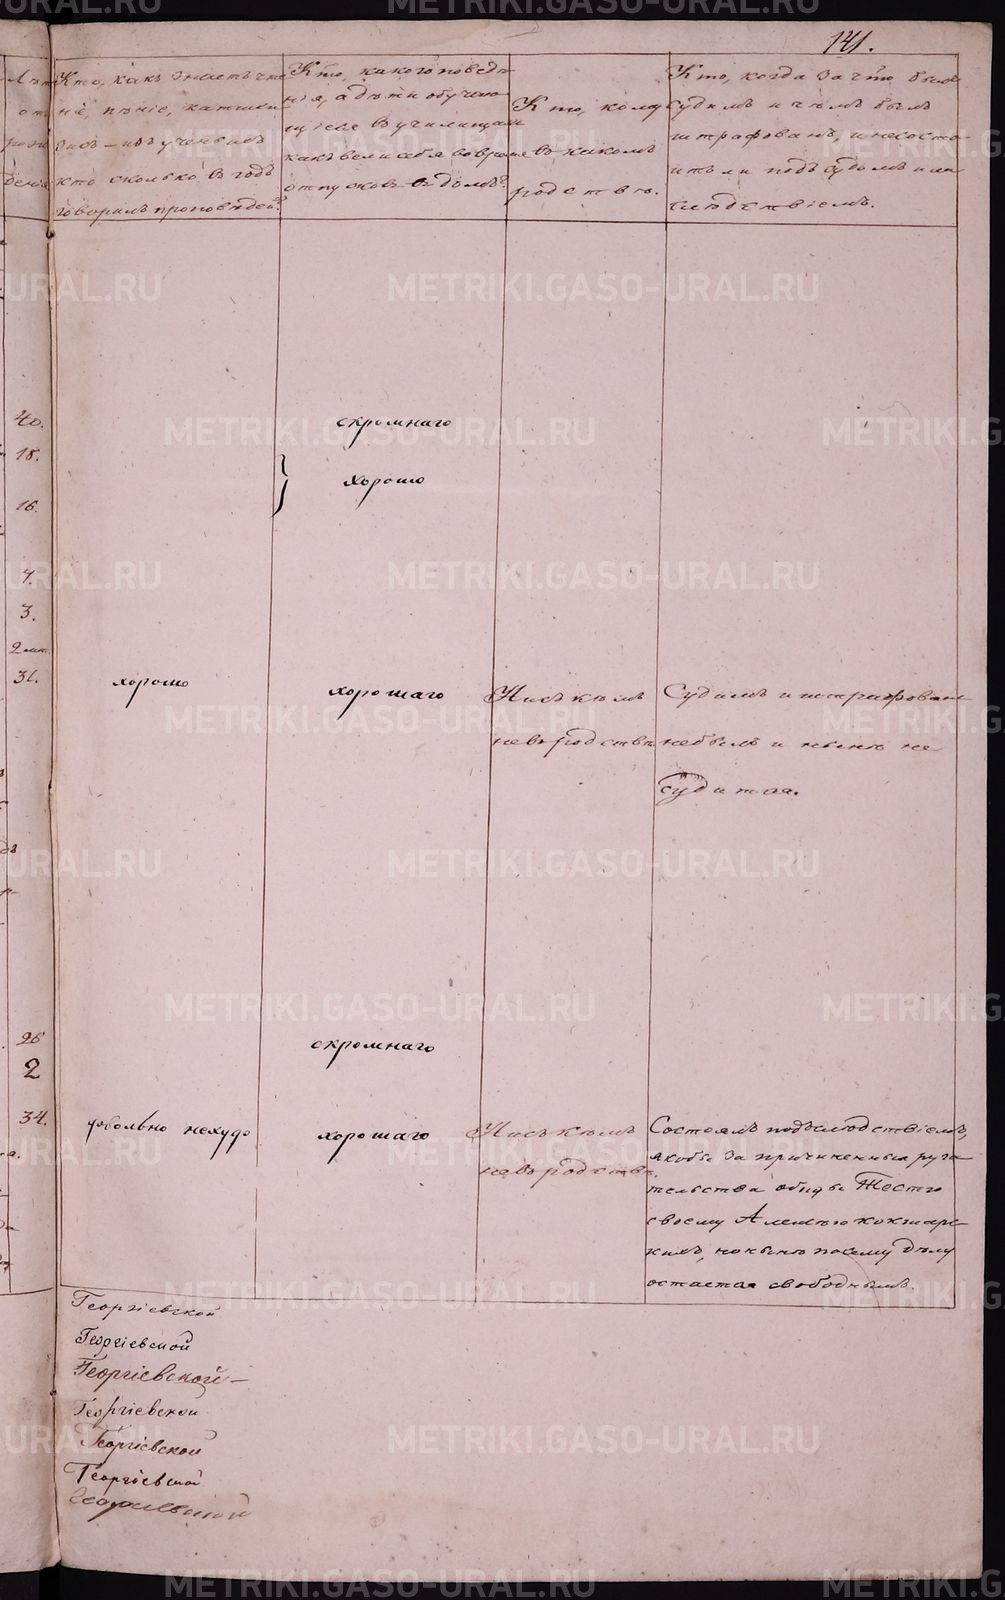 141.
Лѣта
отъ
рож
денія
Кто, какъ знаетъ чте
ніе, пѣніе, катихи
зисъ — изъ ученыхъ
кто сколько въ годъ
говорилъ проповѣдей?
Кто, какого поведе
нія, а дѣти обучаю
щіеся въ училищахъ
какъ вели себя во время
отпусковъ въ домъ?
Кто, кому
въ какомъ
родствѣ.
Кто, когда за что былъ
судимъ и чѣмъ былъ
штрафованъ, и не состо
итъ ли подъ судомъ или
слѣдствіемъ.
40.
скромнаго
18.
хорошо
16.
7.
3.
2 мѣс.
31.
хорошо
хорошаго
Ни съ кѣмъ
не въ родствѣ
Судимъ и штрафован
не былъ и нынѣ не
судится.
26
скромнаго
2
34.
довольно нехудо
хорошаго
Ни съ кѣмъ
не въ родствѣ.
Состоялъ подъ слѣдствіемъ,
якобы за причиненныя руга
тельства обиды Тестю
своему Алексѣю Кокшарс-
кимъ, но нынѣ по сему дѣлу
остается свободнымъ.
Георгіевской
Георгіевской
Георгіевской —
Георгіевской
Георгіевской
Георгіевской
Георгіевской
METRIKI.GASO-URAL.RU